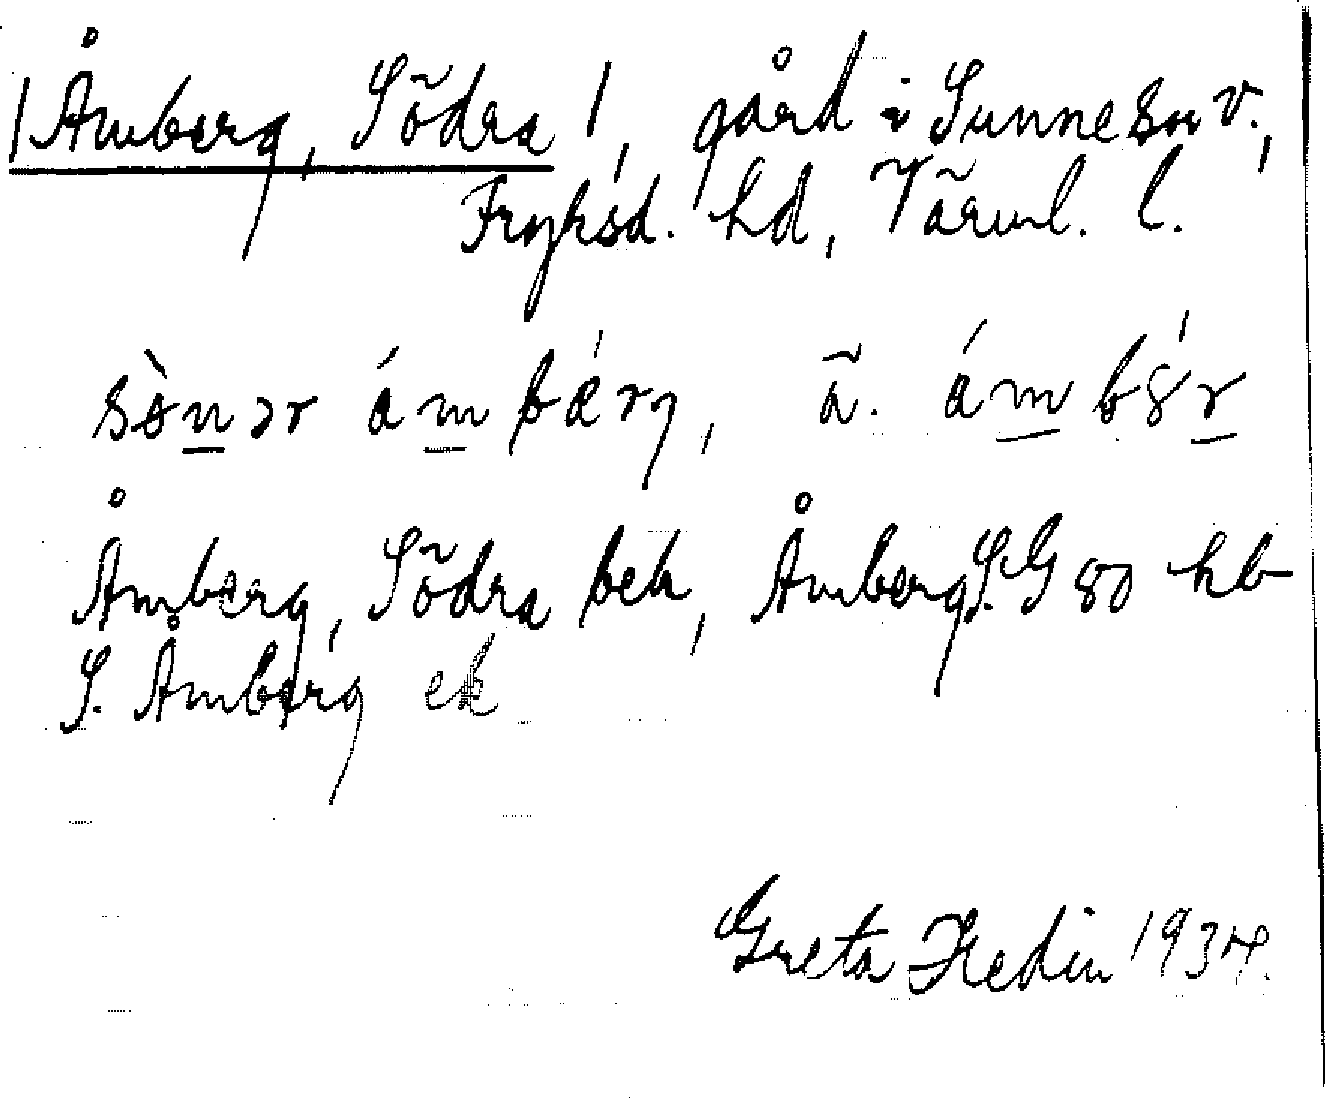 |Åmberg, Södra|, gård i Sunne sn V.,
Fryksd. hd, Värml. l.
ä.
Åmberg, Södra bek, Åmberg S. G 80 hb
S. Åmberg ek
Greta Hedin 1934.